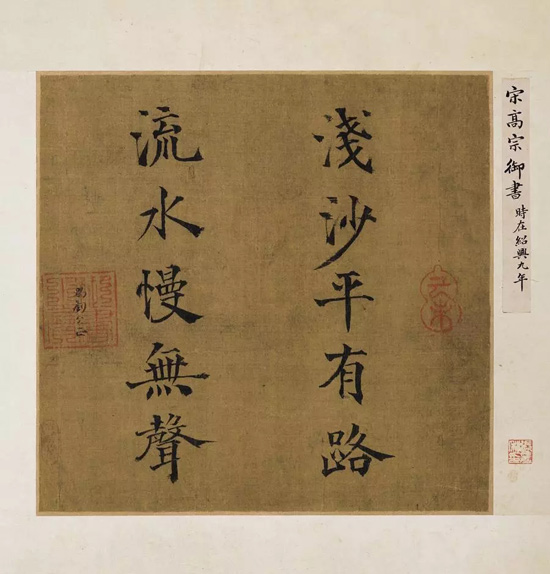 宋高宗御書 時在紹興九年
淺沙平有路
流水慢無聲